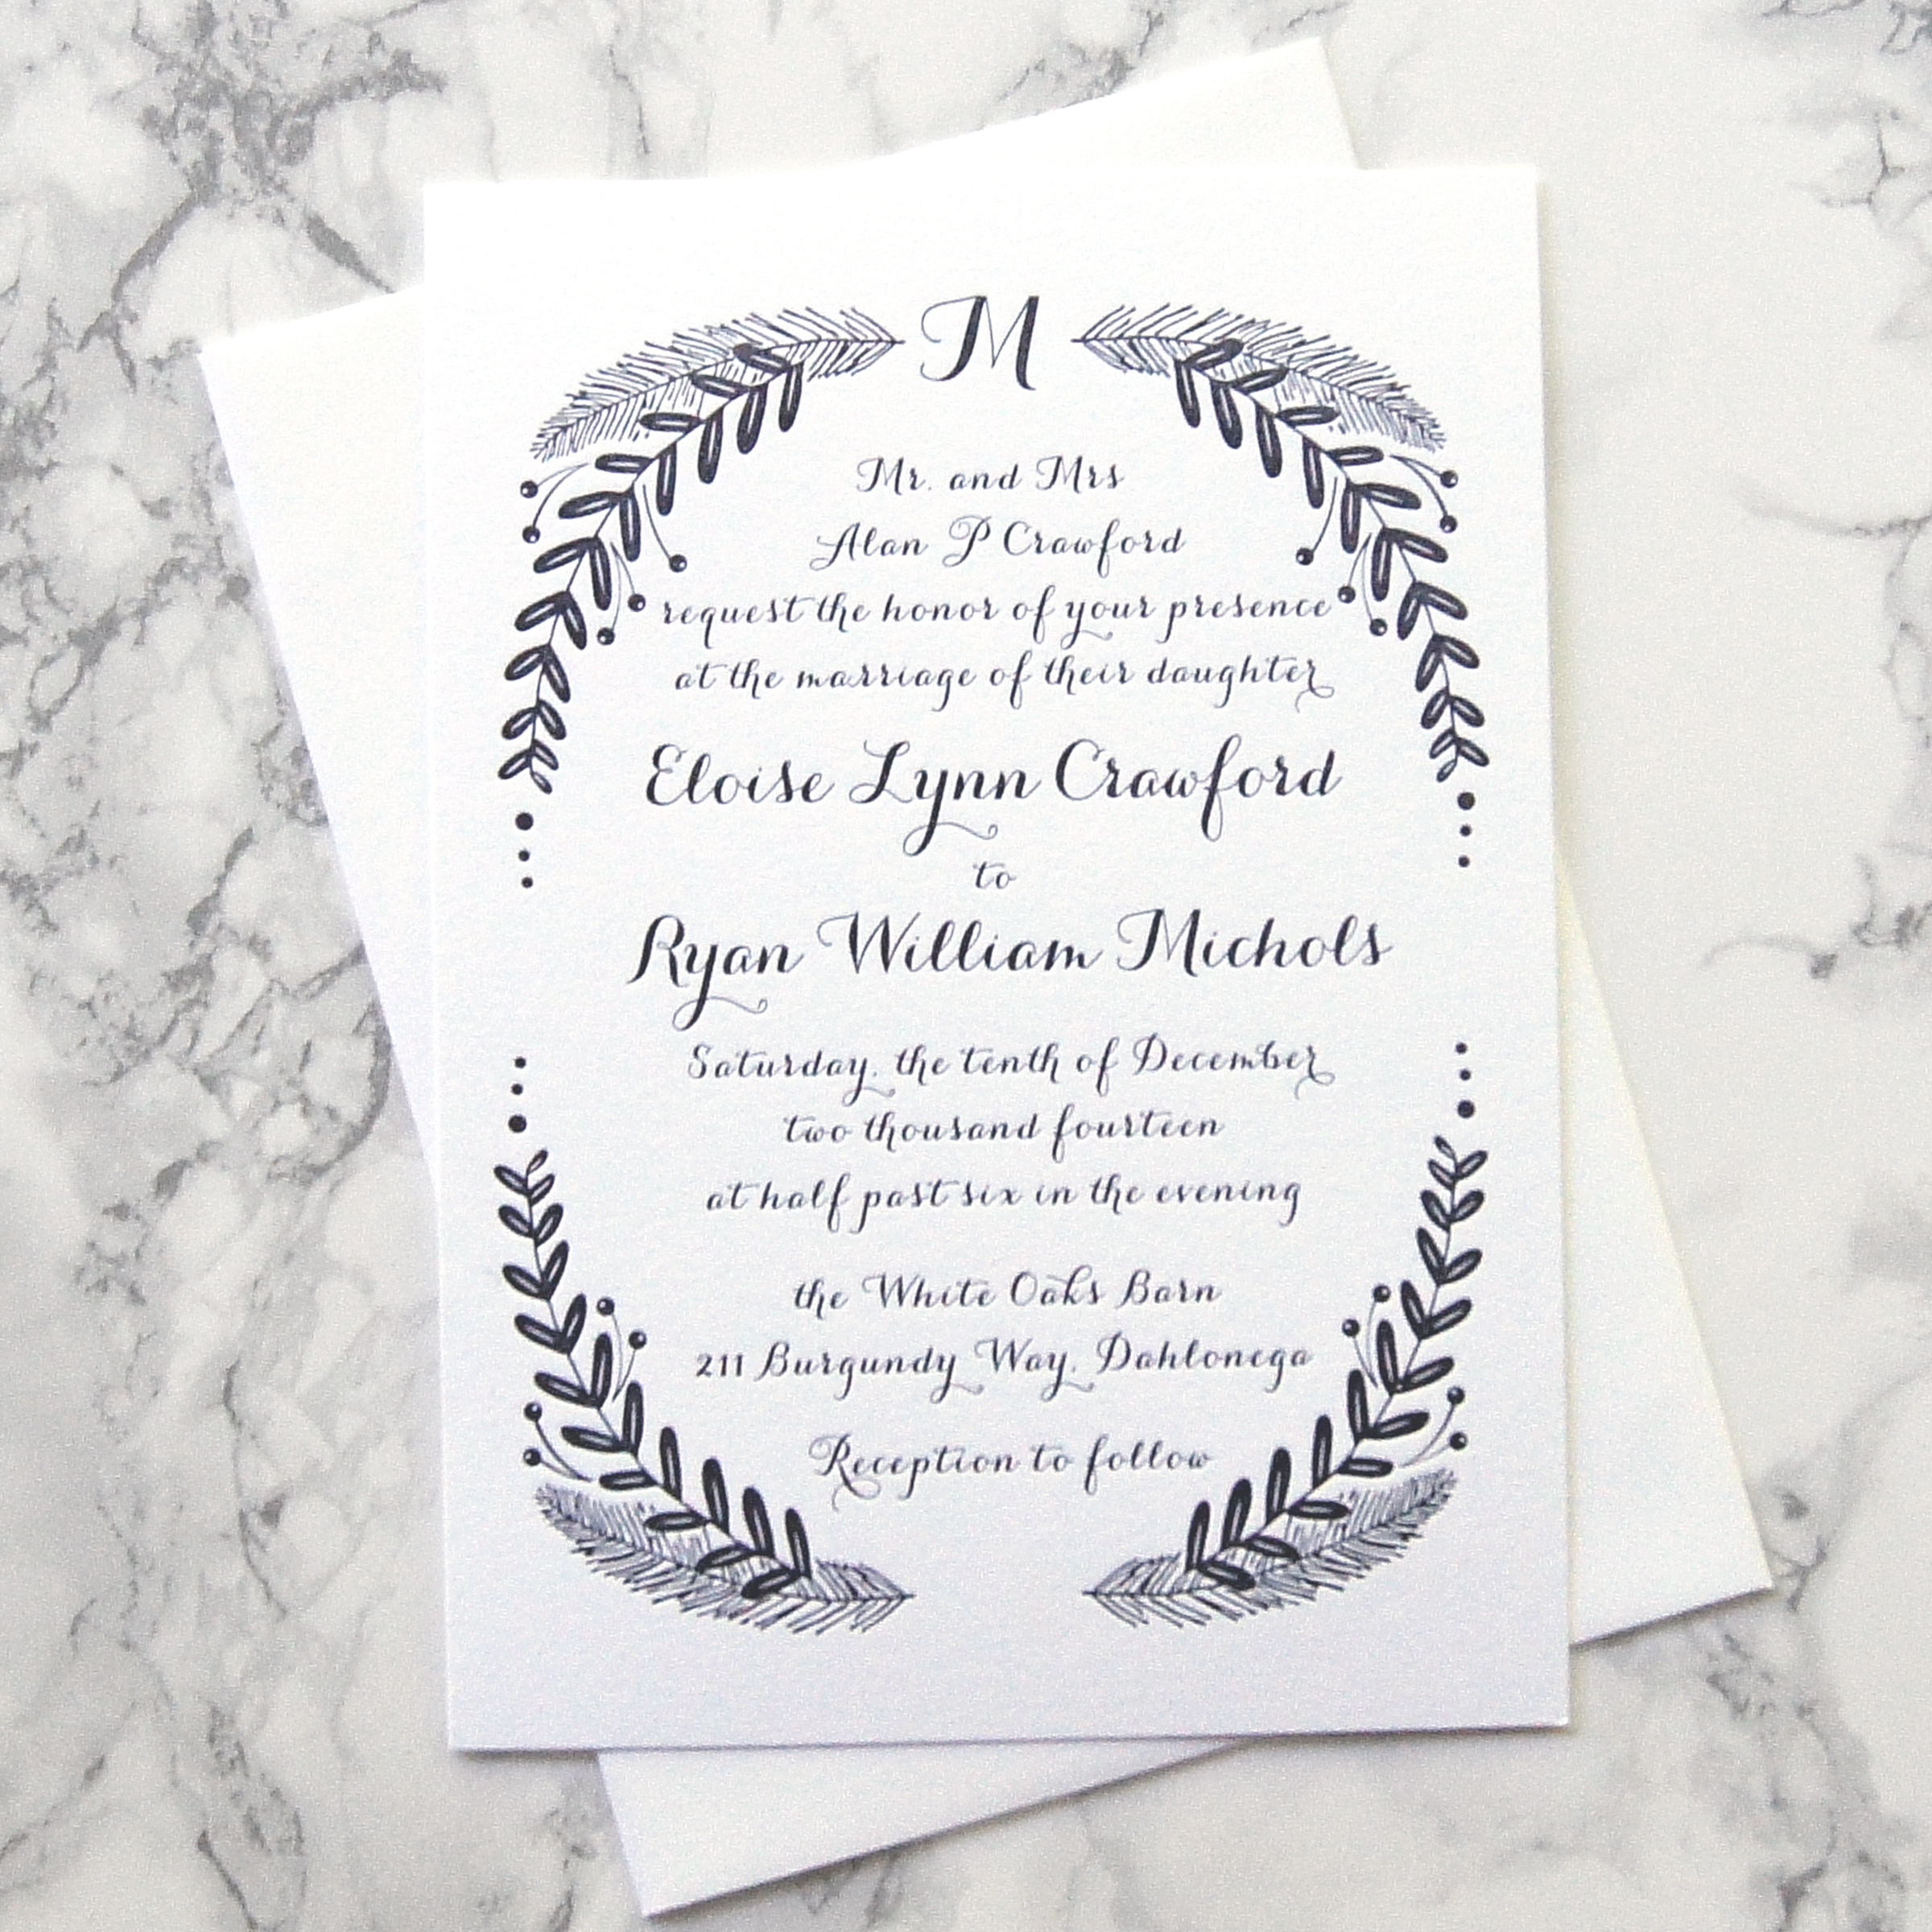 M
Mr. and Mrs
Alan P Crawford
request the honor of your presence
at the marriage of their daughter
Eloise Lynn Crawford
to
Ryan William Michols
Saturday, the tenth of December
two thousand fourteen
at half past six in the evening
the White Oaks Barn
211 Burgundy Way, Dahlonega
Reception to follow